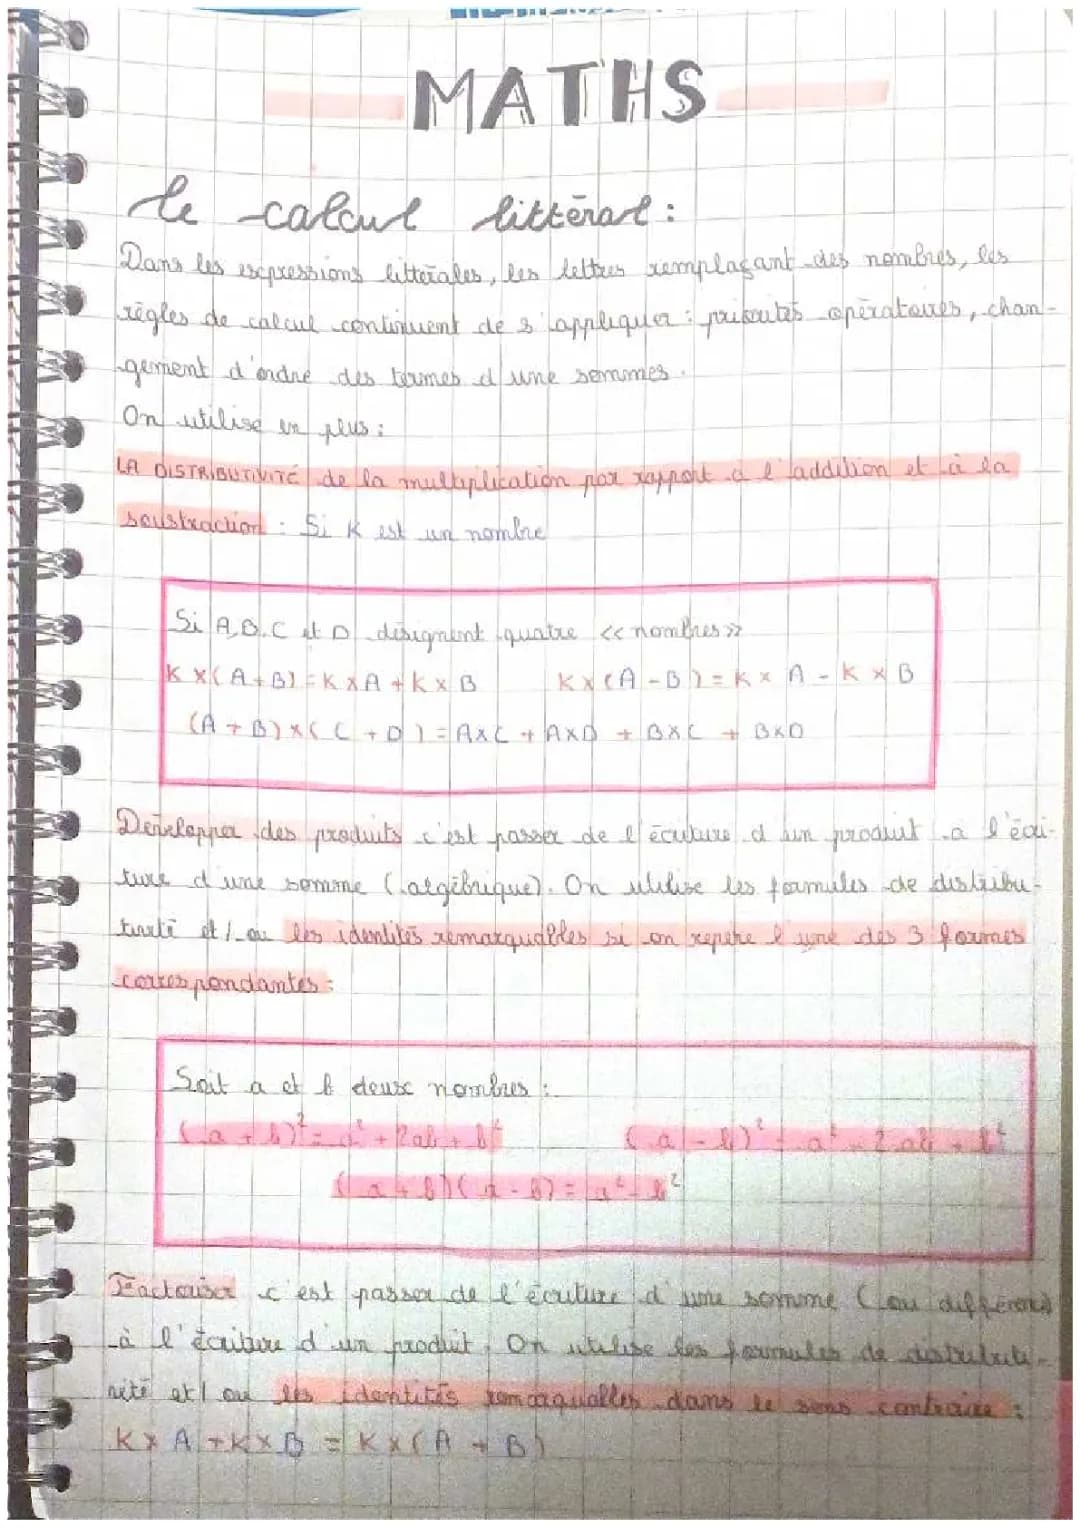 MATHS
le calcul littéral :
Dans les expressions littérales, les lettres remplaçant des nombres, les
règles de calcul continuent de s'appliquer : priorités opératoires, chan-
gement d'ordre des termes d'une sommes.
On utilise en plus :
LA DISTRIBUTIVITÉ de la multiplication par rapport à l'addition et à la
soustraction : Si K est un nombre
Si A,B,C et D désignent quatre << nombres >>
K×(A+B)=K×A+K×B K×(A-B)=K×A-K×B
(A+B)×(C+D)=A×C+A×D+B×C+B×D
Développer des produits c'est passer de l'écriture d'un produit à l'écri-
ture d'une somme (algébrique). On utilise les formules de distribu-
tivité et/ou les identités remarquables si on repère l'une des 3 formes
correspondantes :
Soit a et b deux nombres :
(a+b)²=a²+2ab+b² (a-b)²=a²-2ab+b²
(a+b)(a-b)=a²-b²
Factoriser c'est passer de l'écriture d'une somme (ou différence)
à l'écriture d'un produit. On utilise les formules de distributi-
vité et/ou les identités remarquables dans le sens contraire :
K×A+K×B=K×(A+B)